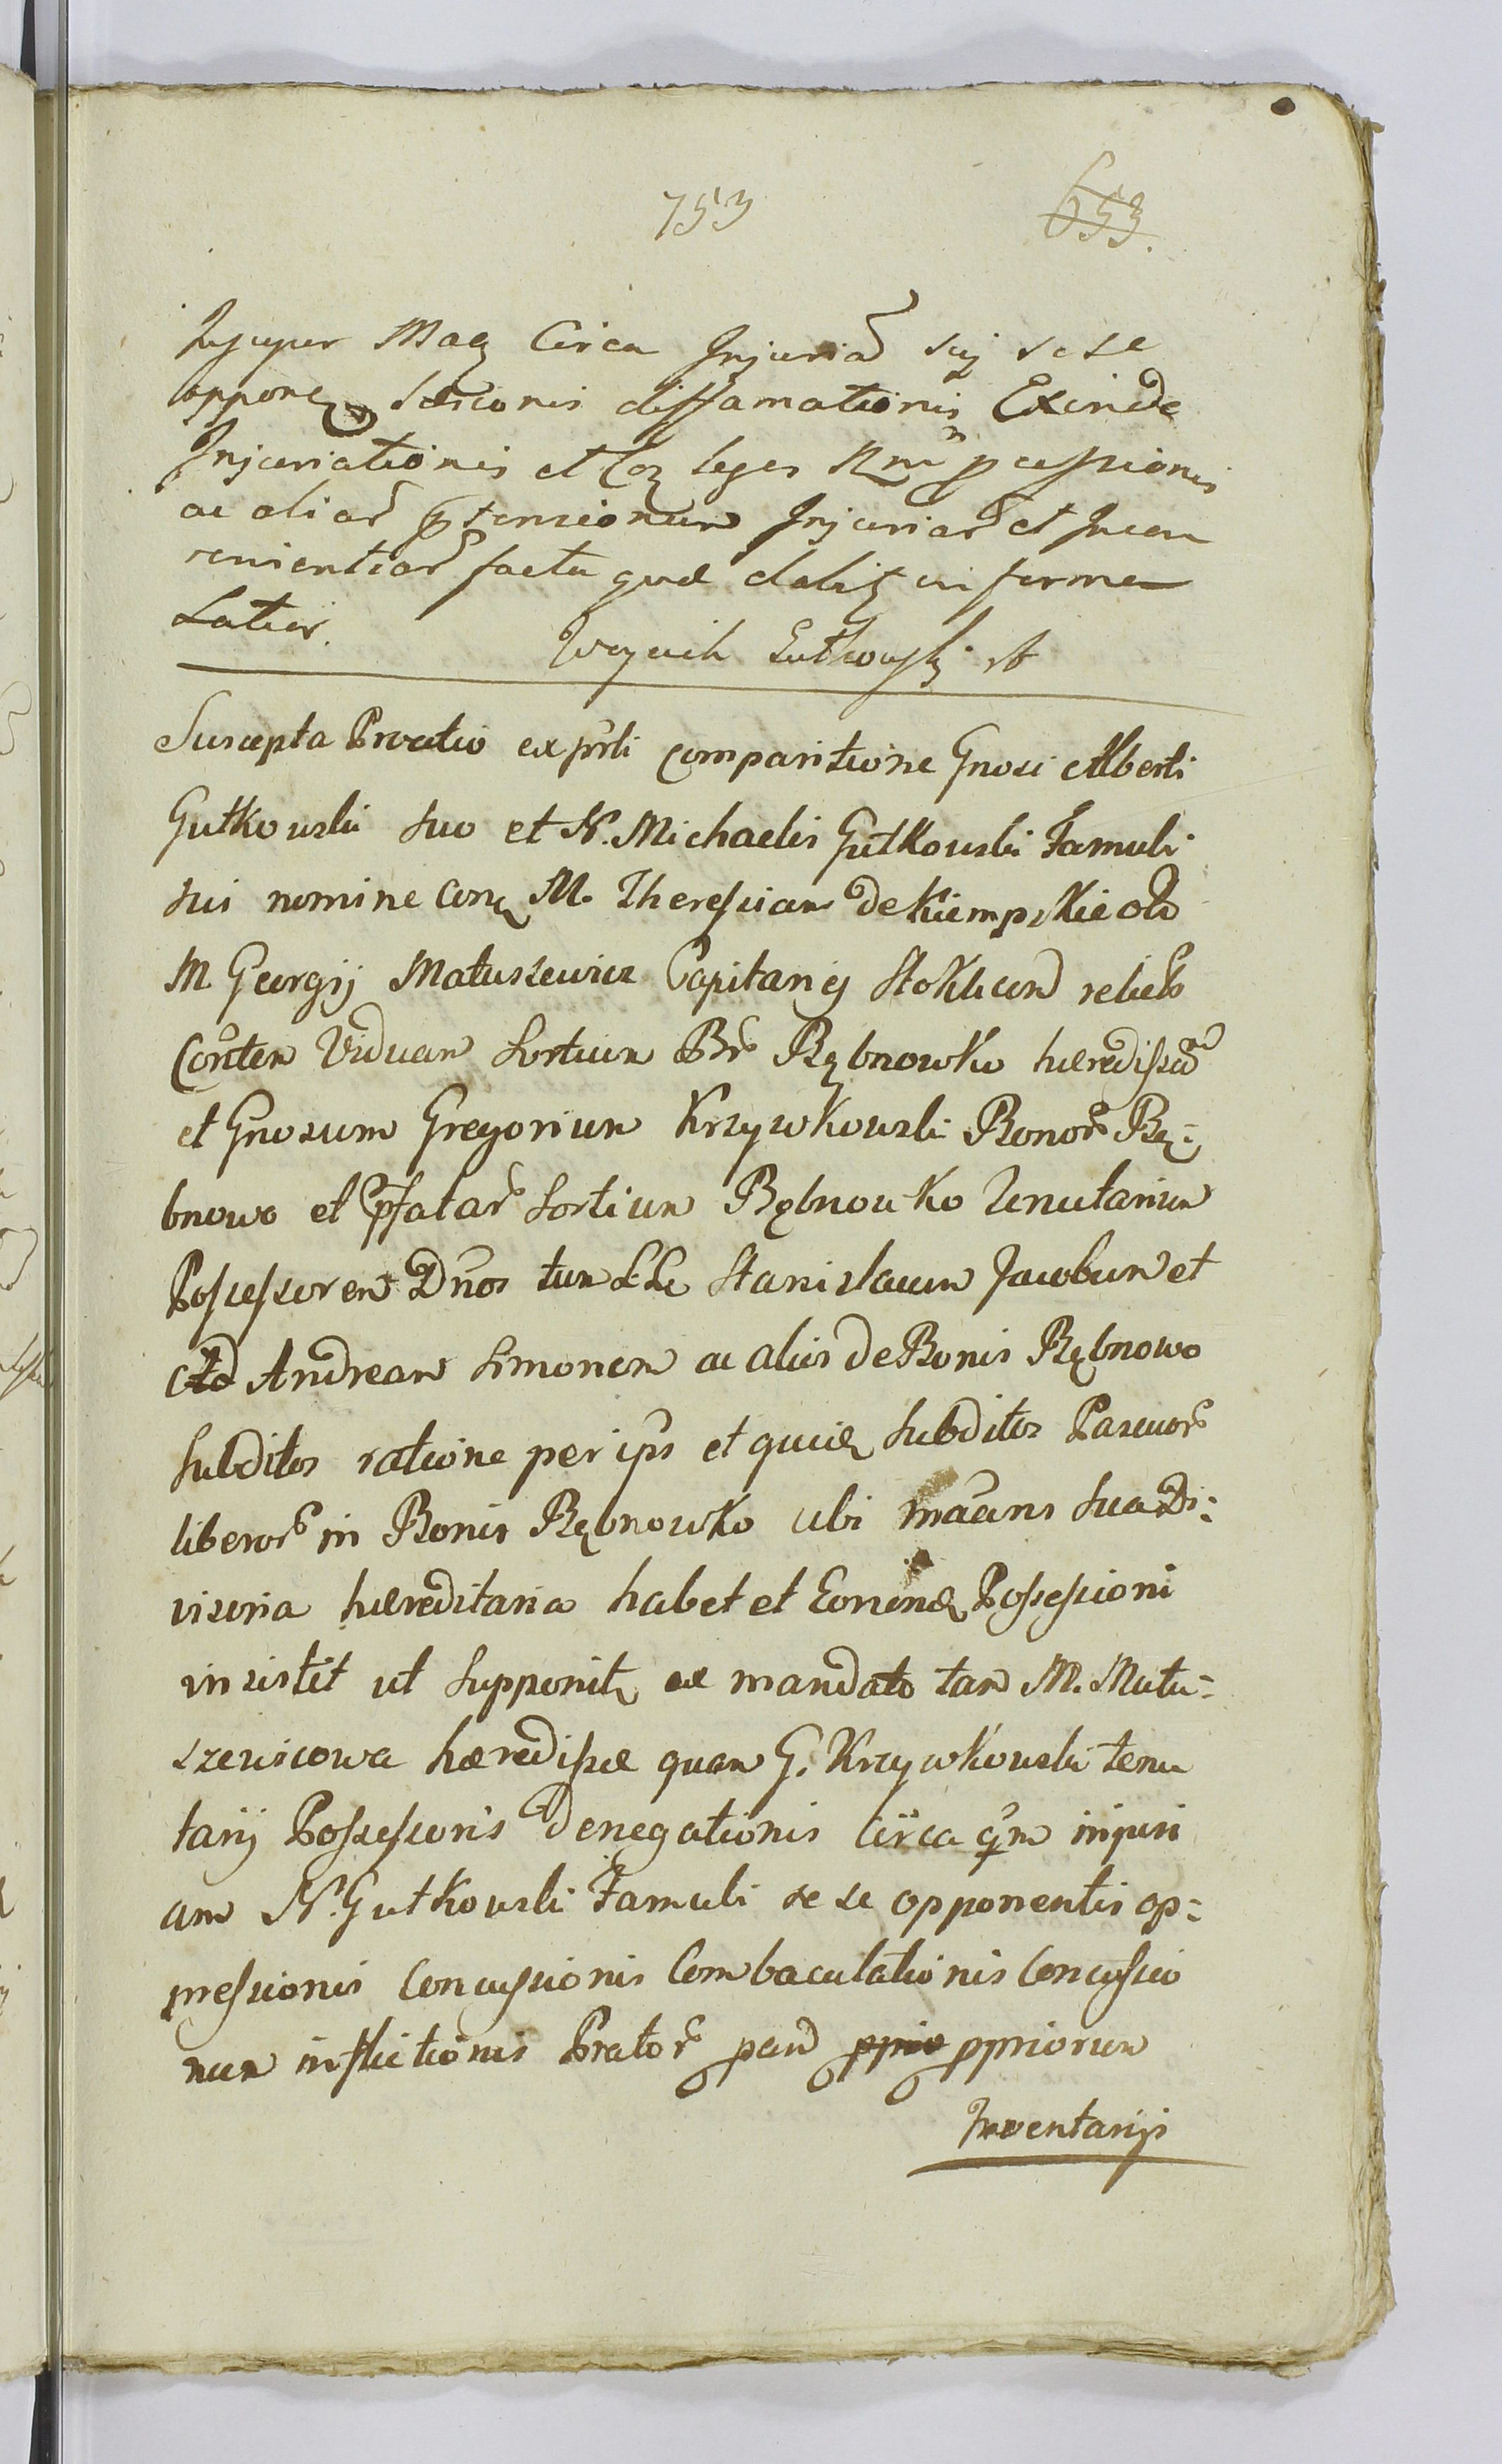 753 653.
Mag Circa Injuria sui sese
oppone Laesionis diffamationis Exinde
Injuriationis et Con leges Rni percussionis
ac aliar prtensionum Injuriar et Incon
venientiar facta quae dabit in forma
Latior.
Woyciech Gutkowski
Suscepta Protatio ex psrti comparitione Gnosi Alberti
Gutkowski suo et N. Michaelis Gutkowski Famuli
sui nomine Con M. Theressiam de Kiempskie olo
M. Georgij Matuszewicz Capitanej Stoklicen relict
Conten Viduam Sortium Br Rębnowko haeredissa
et Gnosum Gregorium Krzywkowski Bonor Rę-
bnowo et pfatar Sortium Rębnowko Tenutarium
Possessorem Dnos tum LL Stanislaum Jacobum et
Ad Andream Simonem ac alios de Bonis Rębnowo
Subditos ratione per ips et quib Subditos Pascuor
liberor in Bonis Rębnowko ubi mans sua Di-
visoria haereditaria habet et Eorund Possessioni
insistit ut supponit ex mandato tam M. Matu-
szewicowa haeredissae quam G. Krzywkowski tenu
tarij Possessoris denegationis circa qm injuri
am N. Gutkowski Famuli se se opponentis op-
pressionis Concussionis Combaculationis Concussio
num inflictionis Prator par pprio ppriorum
Inventarijs